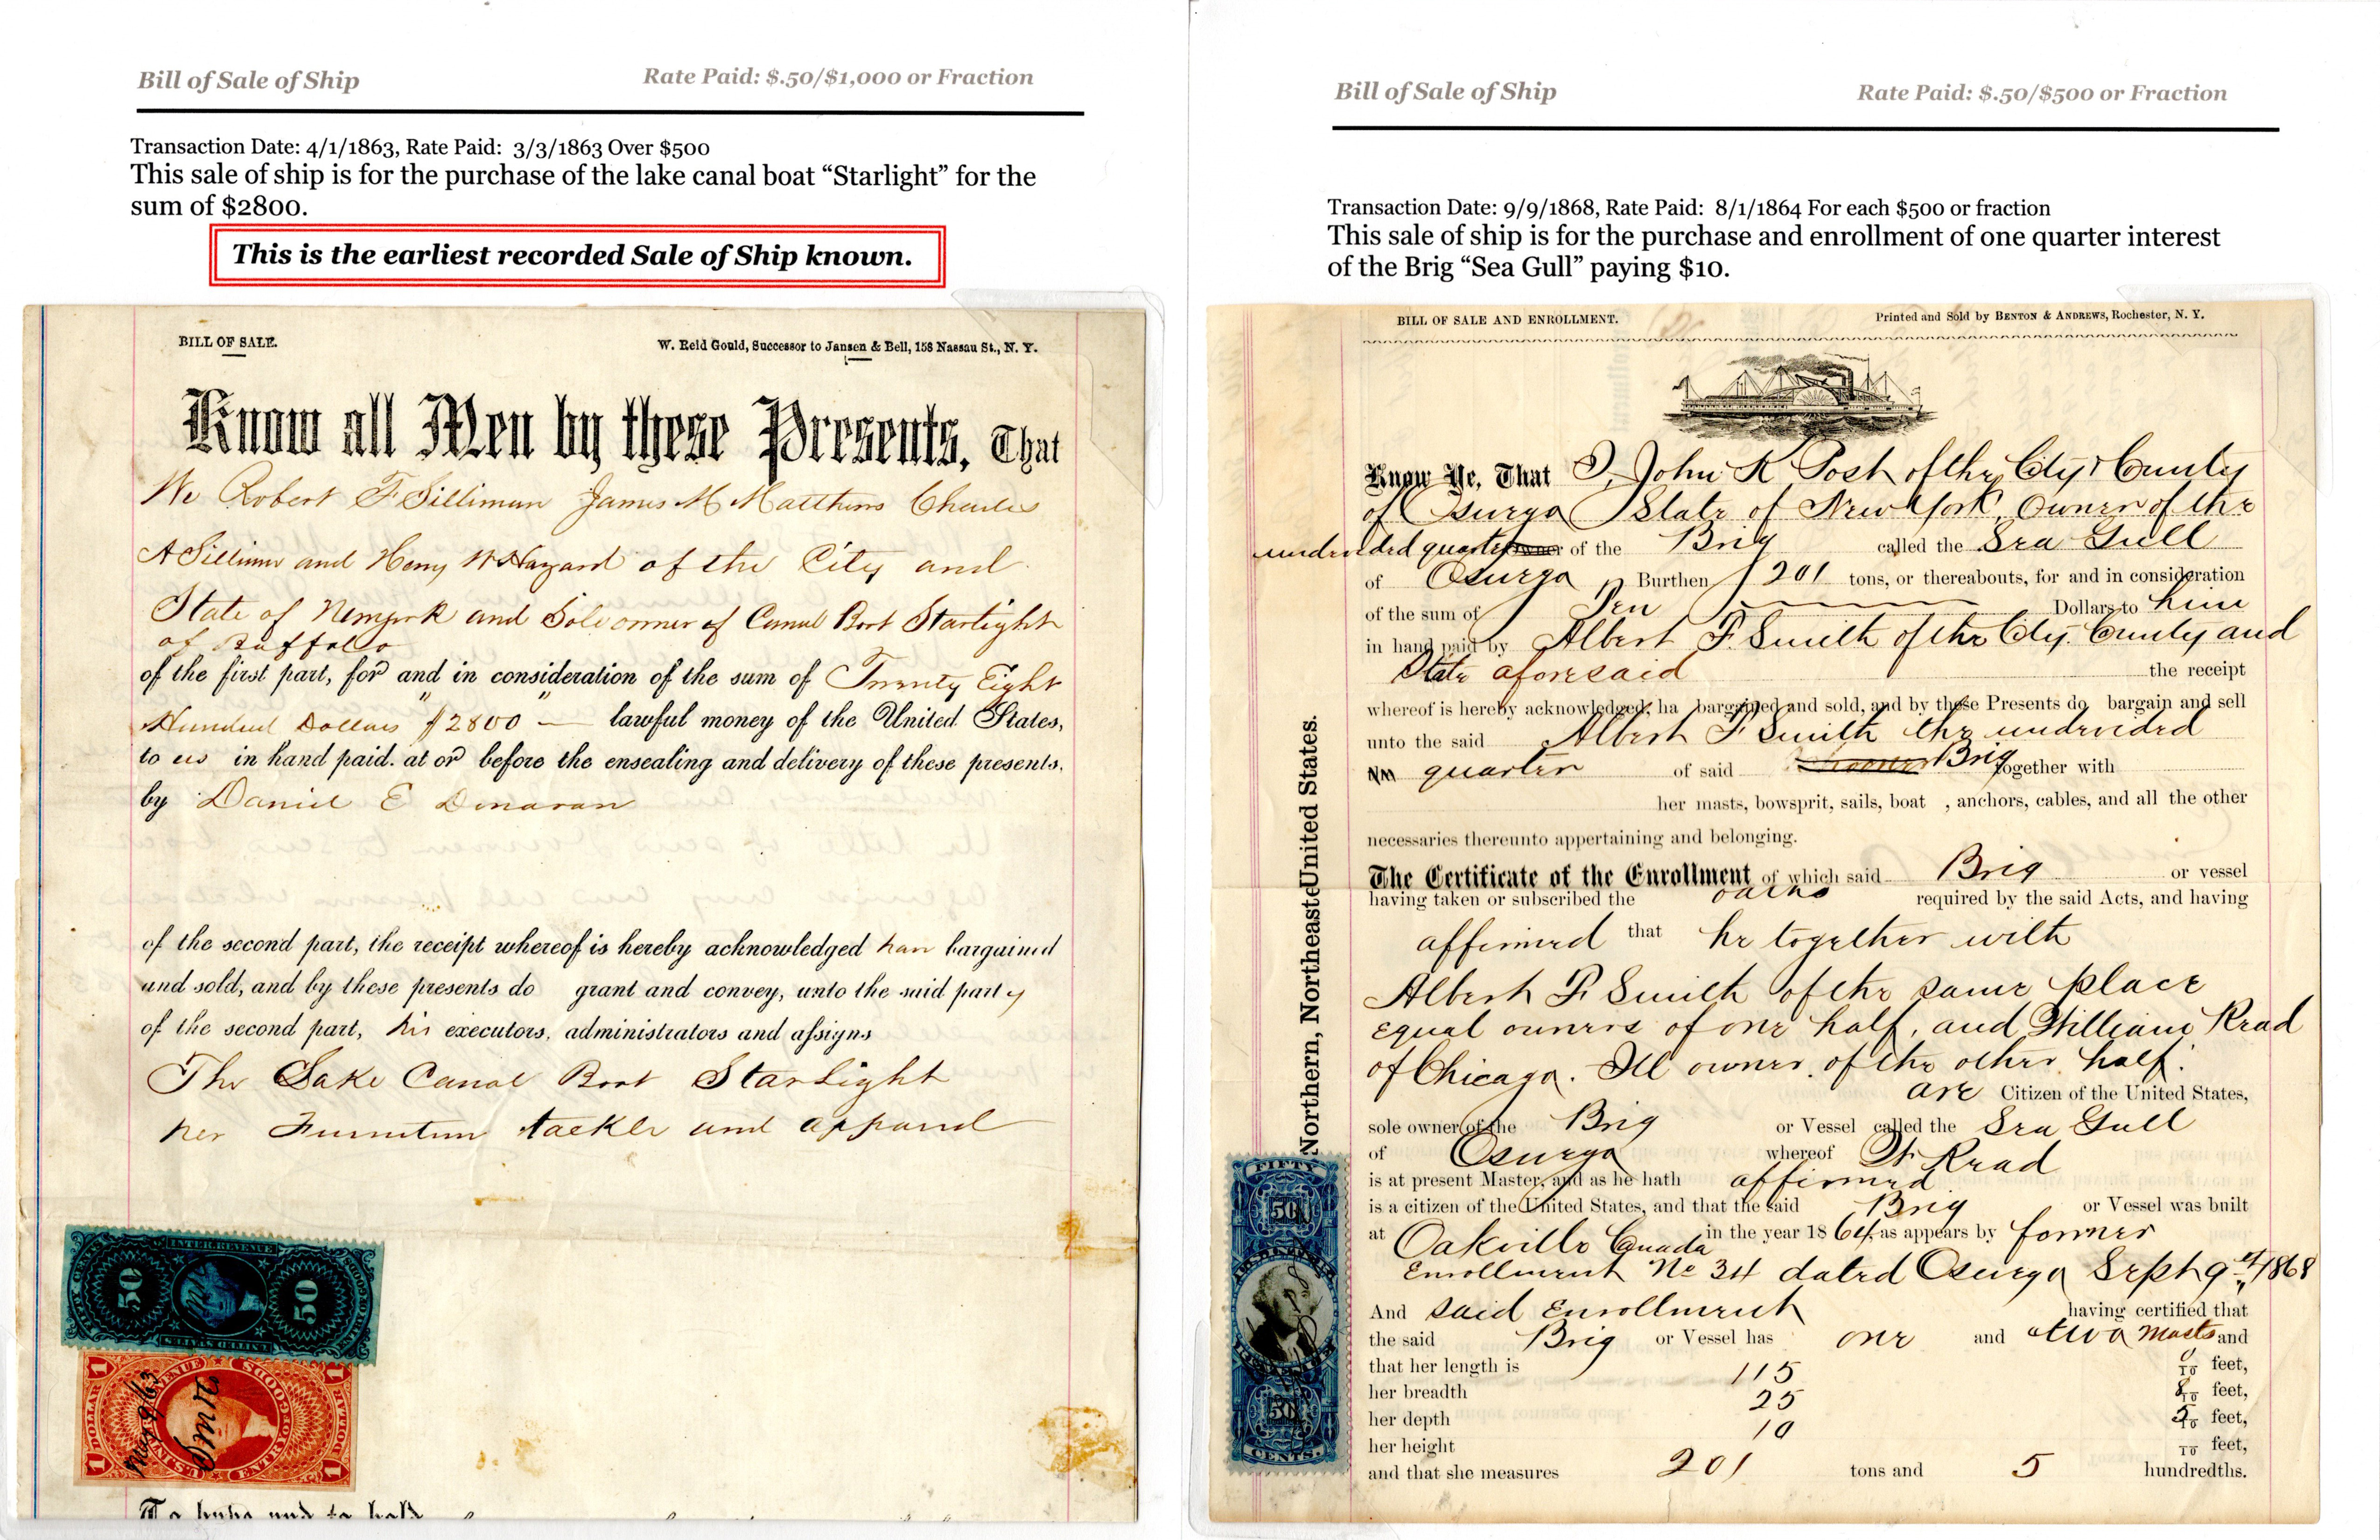 Bill of Sale of Ship
Rate Paid: $.50/$1,000 or Fraction
Transaction Date: 4/1/1863, Rate Paid: 3/3/1863 Over $500
This sale of ship is for the purchase of the lake canal boat “Starlight” for the
sum of $2800.
This is the earliest recorded Sale of Ship known.
BILL OF SALE.
W. Reid Gould, Successor to Jansen & Bell, 158 Nassau St., N. Y.
Know all Men by these Presents, That
We Robert F Silliman James M Matthews Charles
A Silliman and Henry W Hazard of the City and
State of Newyork and Sole owner of Canal Boat Starlight
of Buffalo
of the first part, for and in consideration of the sum of Twenty Eight
Hundred Dollars $2800 — lawful money of the United States,
to us in hand paid. at or before the ensealing and delivery of these presents.
by Daniel E Donavan
of the second part, the receipt whereof is hereby acknowledged han bargained
and sold, and by these presents do grant and convey, unto the said party
of the second part, his executors, administrators and assigns
The Lake Canal Boat Starlight
her Furniture tackle and apparel
FIFTY CENTS
INTER. REVENUE
50
50
UNITED STATES
1 DOLLAR
U.S. INTER. REVENUE
ENTRY OF GOODS
DOLLAR 1
To have and to hold
Bill of Sale of Ship
Rate Paid: $.50/$500 or Fraction
Transaction Date: 9/9/1868, Rate Paid: 8/1/1864 For each $500 or fraction
This sale of ship is for the purchase and enrollment of one quarter interest
of the Brig “Sea Gull” paying $10.
BILL OF SALE AND ENROLLMENT.
Printed and Sold by BENTON & ANDREWS, Rochester, N. Y.
Know Ye, That I, John K Post of the City & County
of Oswego State of New York, Owner of the
undivided quarter owner of the Brig called the Sea Gull
of Oswego Burthen 201 tons, or thereabouts, for and in consideration
of the sum of Ten Dollars to him
in hand paid by Albert F. Smith of the City. County and
State aforesaid the receipt
whereof is hereby acknowledged, ha bargained and sold, and by these Presents do bargain and sell
unto the said Albert F Smith the undivided
quarter of said Schooner Brig together with
her masts, bowsprit, sails, boat , anchors, cables, and all the other
necessaries thereunto appertaining and belonging.
The Certificate of the Enrollment of which said Brig or vessel
having taken or subscribed the oaths required by the said Acts, and having
affirmed that he together with
Albert F. Smith of the same place
equal owners of one half, and William Read
of Chicago. Ill owner of the other half.
are Citizen of the United States,
sole owner of the Brig or Vessel called the Sea Gull
of Oswego whereof W. Read
is at present Master, and as he hath affirmed
is a citizen of the United States, and that the said Brig or Vessel was bnilt
at Oakville Canada in the year 1864, as appears by former
Enrollment No 34 dated Oswego Sept 9th, 1868
And said Enrollment having certified that
the said Brig or Vessel has one and two masts and
that her length is 115 0/10 feet,
her breadth 25 8/10 feet,
her depth 10 5/10 feet,
her height /10 feet,
and that she measures 201 tons and 5 hundredths.
Northern, NortheasteUnited States.
FIFTY
50
50
CENTS.